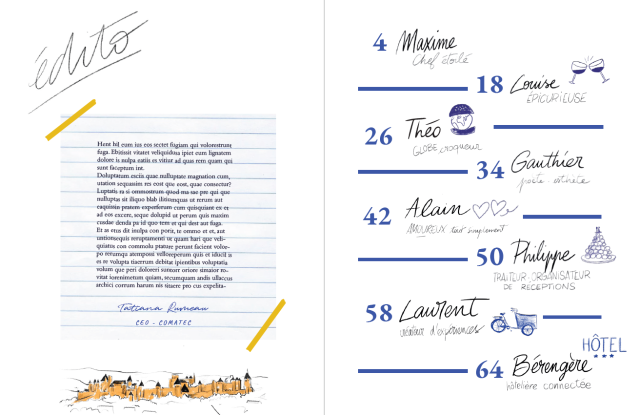 édito
Hent hil eum ius eos sectet fugiam qui volorestrunt
fuga. Ebitissit vitatet veliquidus ipiet eum lignatem
dolore is nulpa eatiis es vitiur ad quas rem quam qui
sunt faceptum int.
Doluptatum escia quae nulluptate magnation cum,
utation sequassim res eost que eost, quae consectur?
Luptatis ra si ommostrum quod ma sae pre qui que
nulluptas sit iliquo blab ilitionsequis ut rerum aut
eaquissin pratem experferum cum quisquiant ex et
ad eos excere, seque dolupid ut perum quis maxim
cusdae denda pa id quo tem et qui dest aut fuga.
Et as erus dit inulpa con poris, te ommo et et, aut
untionsequis reruptamenti te quam hari que veli-
quiatis con commolu ptatate perunt faciunt volor-
po rerumqu atemposti velloreperum quis et iducid et
es re volupta tiaerrum debitat ipientibus voluptatia
volum que peri dolorerit suntiorr oriore simaior ro-
vitat iorenimentum quiam, secumquam andis ullaccus
archici corrum harum nis itiaere pro cus expelita-
Tatiana Rumeau
CEO - COMATEC
4 Maxime
Chef étoilé
18 Louise
ÉPICURIEUSE
26 Théo
GLOBE croqueur
34 Gauthier
poète - esthète
42 Alain
AMOUREUX tout simplement
50 Philippe
TRAITEUR-ORGANISATEUR
DE RÉCEPTIONS
58 Laurent
créateur d'expériences
HÔTEL
64 Bérengère
hôtelière connectée